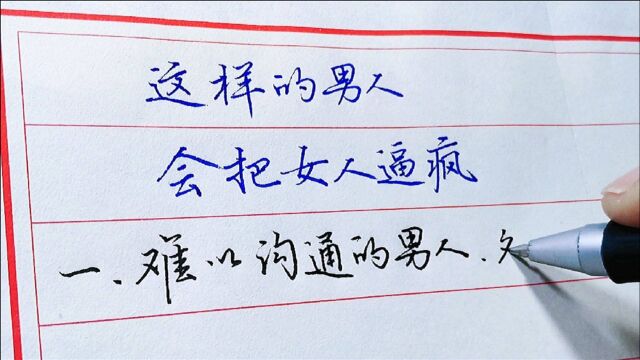 这样的男人
会把女人逼疯
一、难以沟通的男人、